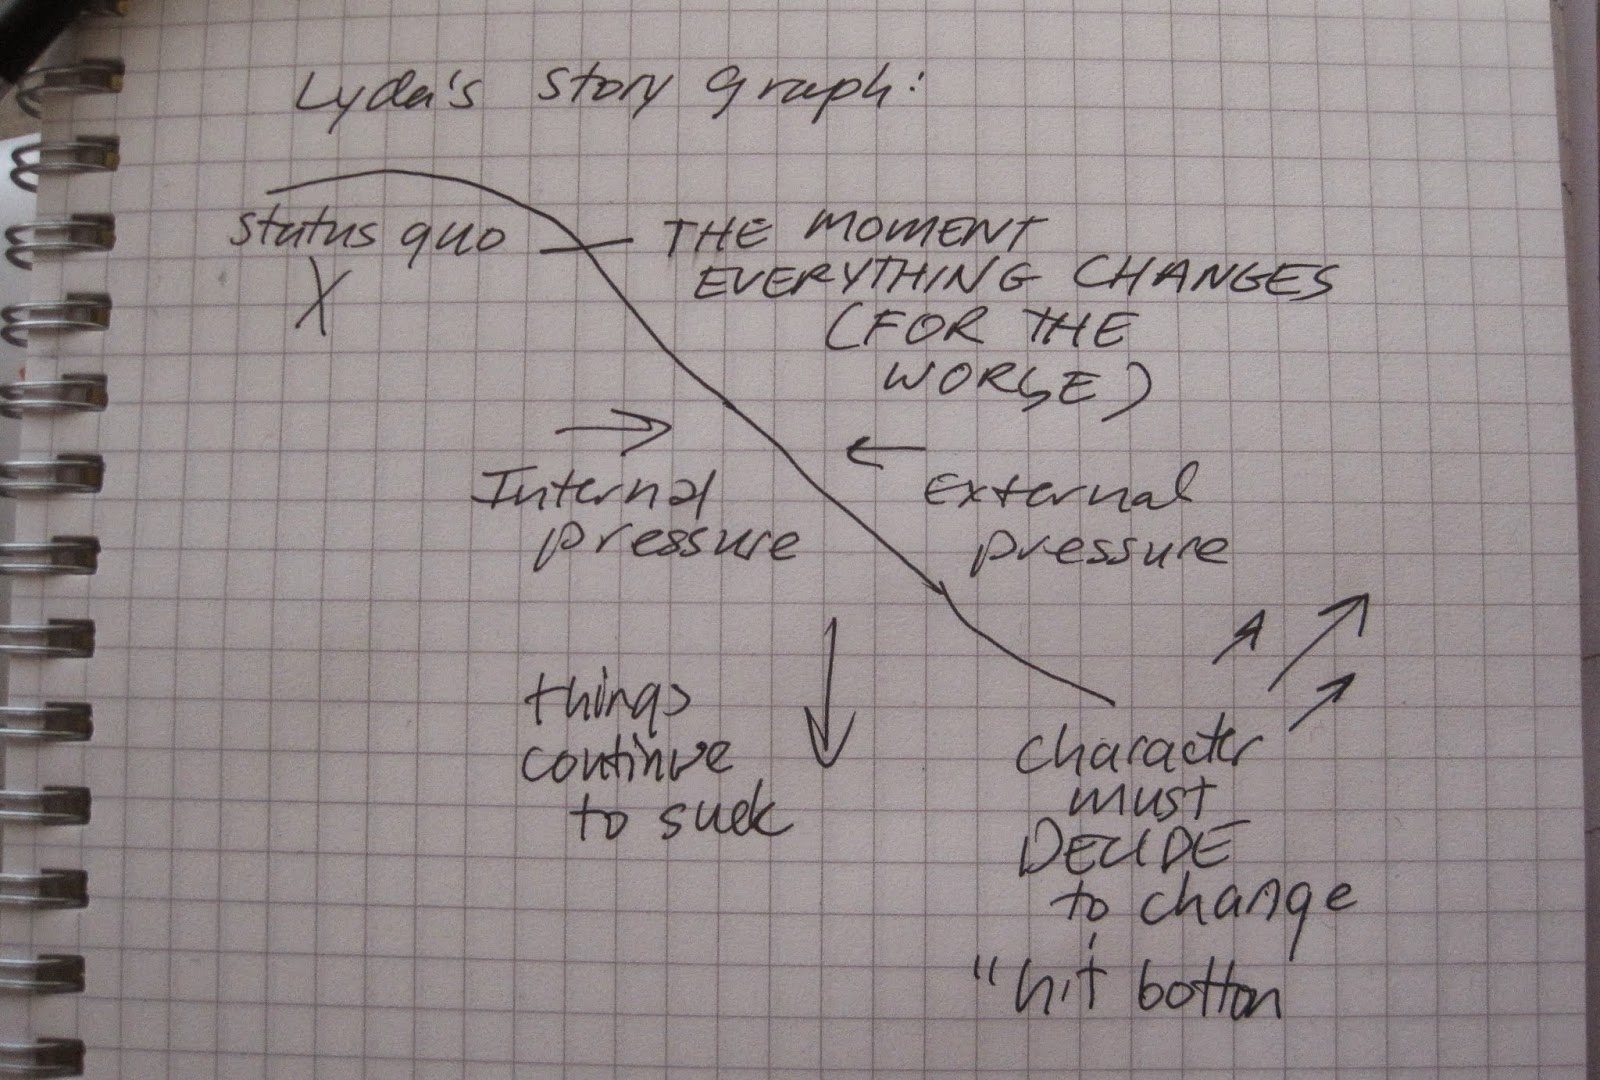 Lyda's Story Graph:
status quo
X
THE MOMENT
EVERYTHING CHANGES
(FOR THE
WORSE)
Internal
pressure
External
pressure
things
continue
to suck
character
must
DECIDE
to change
"hit bottom